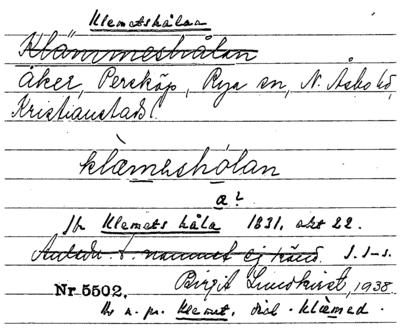 Klemetshålan
Klämmeshålan
åker, Persköp, Rya sn, N. Åsbo hd,
Kristianstads l.
klæmeshólan
a?
Jfr Klemets håla 1831, okt 22.
Anledn. t. namnet ej känd. J. I-s.
Birgit Lundkvist, 1938.
Nr 5502.
av n. pr. Klemet, dial. Klæmed.